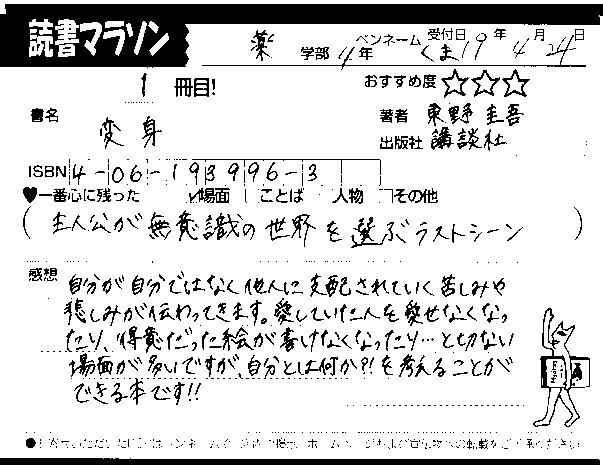 読書マラソン
薬 学部 4年 ペンネーム くま 受付日 19年 4月 24日
1 冊目! おすすめ度 ☆☆☆
書名 変身
著者 東野圭吾
出版社 講談社
ISBN 4-06-193996-3
♥一番心に残った ✓場面 ことば 人物 その他
(主人公が無意識の世界を選ぶラストシーン)
感想 自分が自分ではなく他人に支配されていく苦しみや
悲しみが伝わってきます。愛していた人を愛せなくなっ
たり、得意だった絵が書けなくなったり…と切ない
場面が多いですが、自分とは何か?!を考えることが
できる本です!!